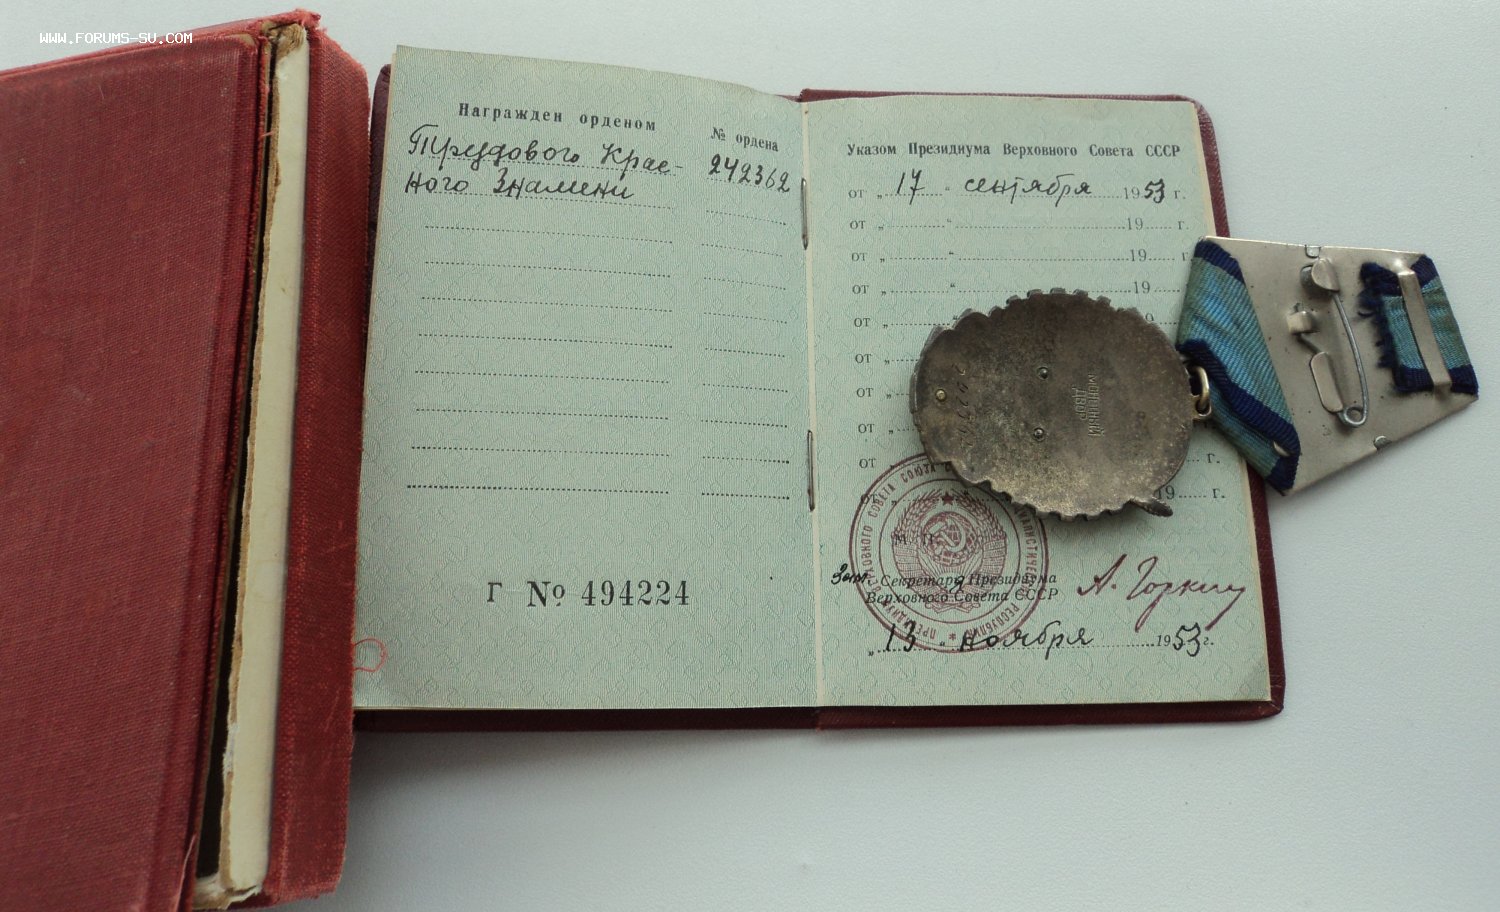 WWW.FORUMS-SU.COM
Награжден орденом
№ ордена
Трудового Крас-
ного Знамени
242362
Г № 494224
Указом Президиума Верховного Совета СССР
от „ 17 “ сентября 1953 г.
от „ “ 19 г.
от „ “ 19 г.
от „ “ 19
от „ “ 9
от „
от „
от „
от „ г.
от „ 19 г.
МОНЕТНЫЙ
ДВОР
М. П.
Зам. Секретаря Президиума
Верховного Совета СССР
А. Горкин
„ 13 “ ноября 1953 г.